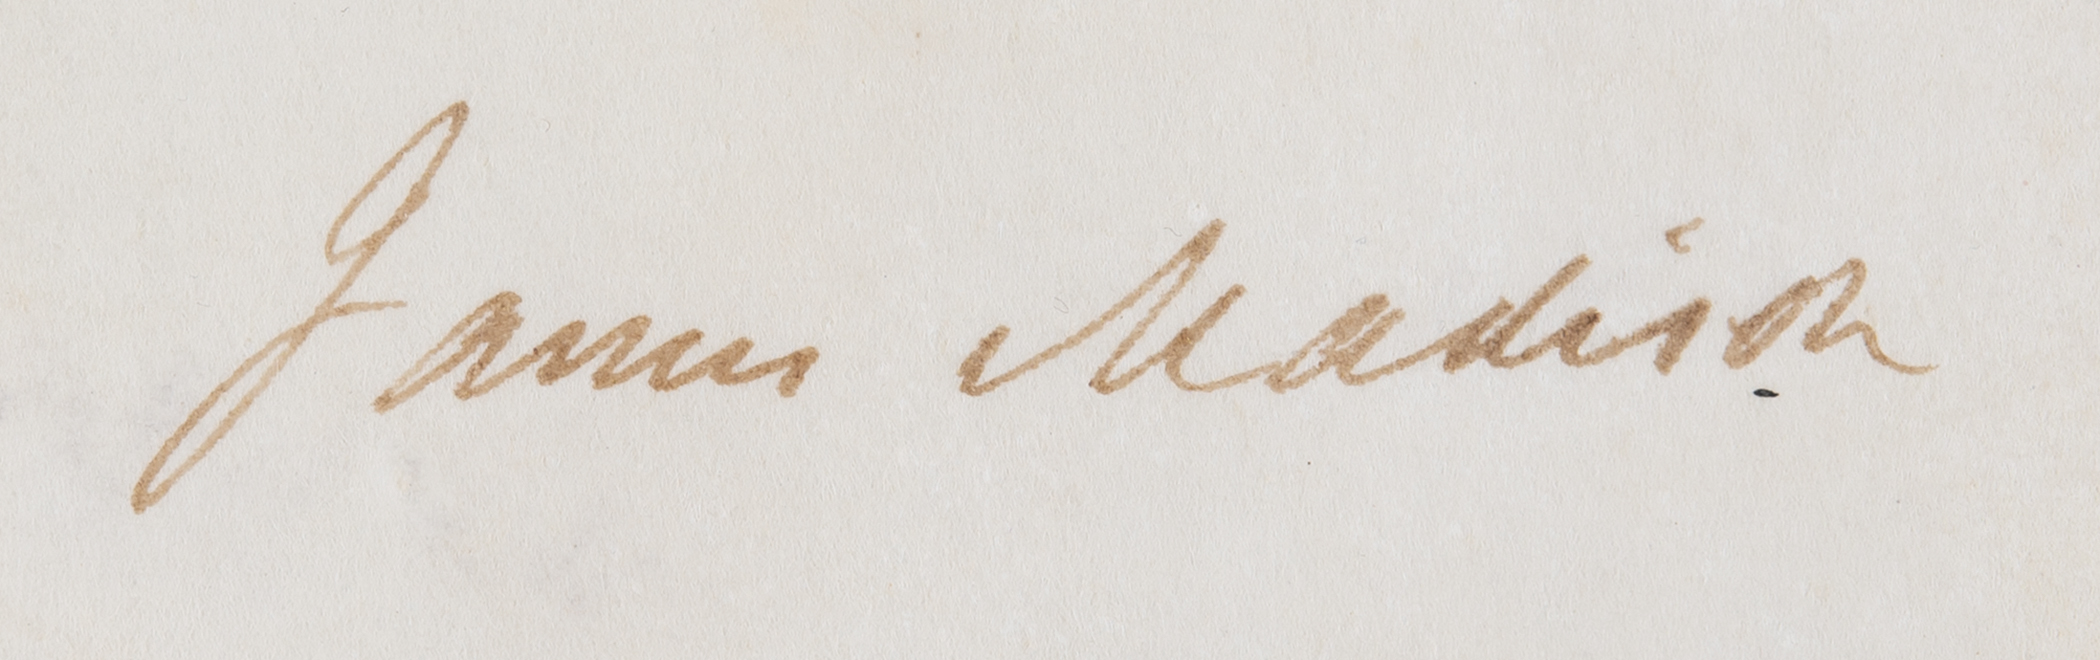 James Madison